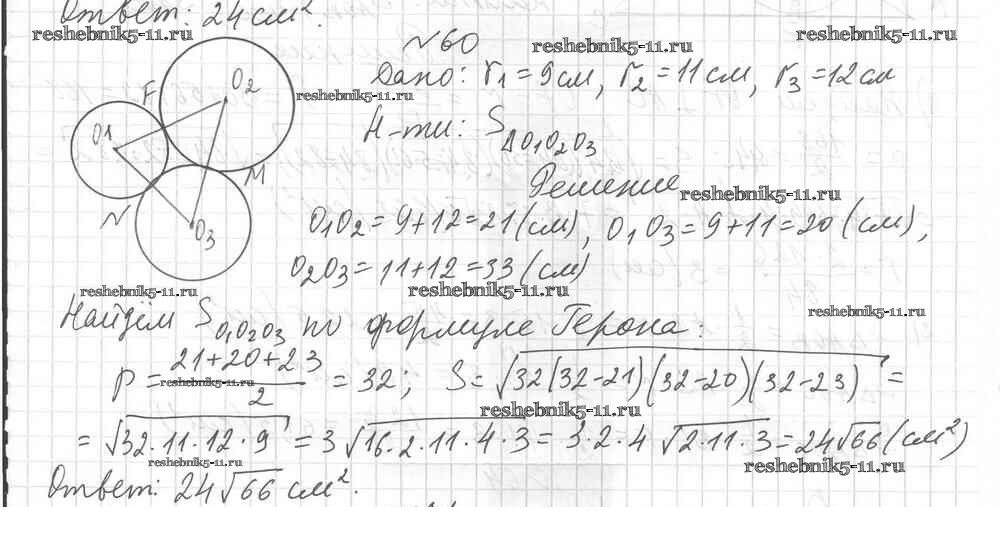 Ответ: 24 см².
reshebnik5-11.ru
reshebnik5-11.ru
reshebnik5-11.ru
№60
Дано: r₁ = 9 см, r₂ = 11 см, r₃ = 12 см
reshebnik5-11.ru
F
O2
O1
M
N
O3
Н-ти: S△O₁O₂O₃
Решение
reshebnik5-11.ru
O₁O₂ = 9+12 = 21 (см), O₁O₃ = 9+11 = 20 (см),
O₂O₃ = 11+12 = 33 (см)
reshebnik5-11.ru
reshebnik5-11.ru
reshebnik5-11.ru
Найдём S O₁O₂O₃ по формуле Герона:
p = (21+20+23)/2 = 32; S = √(32(32-21)(32-20)(32-23)) =
reshebnik5-11.ru
reshebnik5-11.ru
= √(32·11·12·9) = 3√(16·2·11·4·3) = 3·2·4√(2·11·3) = 24√66 (см²)
reshebnik5-11.ru
reshebnik5-11.ru
Ответ: 24√66 см².